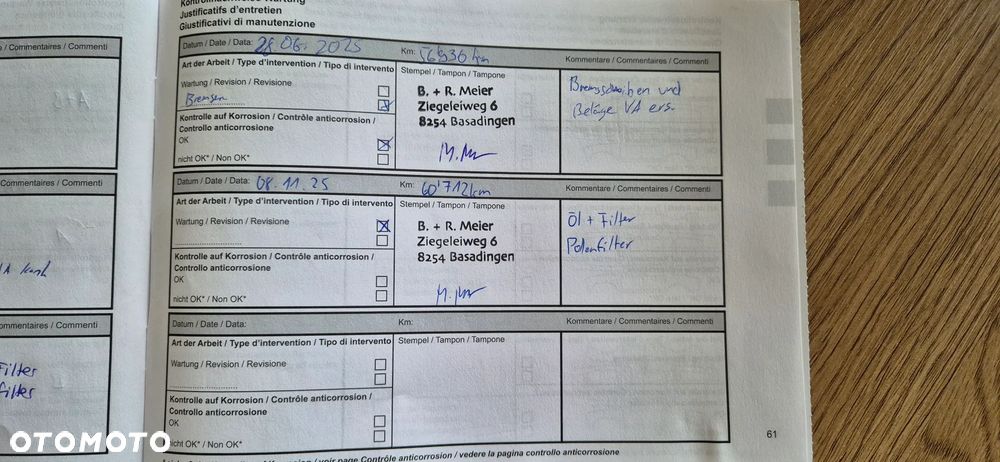 Justificatifs d'entretien
Giustificativi di manutenzione
Datum / Date / Data: 28 06. 2025 Km: 56936 km Kommentare / Commentaires / Commenti
Art der Arbeit / Type d'intervention / Tipo di intervento Stempel / Tampon / Tampone
Wartung / Revision / Revisione
Bremsen
B. + R. Meier
Ziegeleiweg 6
8254 Basadingen
Bremsscheiben und
Beläge VA ers.
Kontrolle auf Korrosion / Contrôle anticorrosion /
Controllo anticorrosione
OK
nicht OK* / Non OK*
Datum / Date / Data: 08.11.25 Km: 60'712km Kommentare / Commentaires / Commenti
Art der Arbeit / Type d'intervention / Tipo di intervento Stempel / Tampon / Tampone
Wartung / Revision / Revisione
B. + R. Meier
Ziegeleiweg 6
8254 Basadingen
Öl + Filter
Polenfilter
Kontrolle auf Korrosion / Contrôle anticorrosion /
Controllo anticorrosione
OK
nicht OK* / Non OK*
Datum / Date / Data: Km: Kommentare / Commentaires / Commenti
Art der Arbeit / Type d'intervention / Tipo di intervento Stempel / Tampon / Tampone
Wartung / Revision / Revisione
Kontrolle auf Korrosion / Contrôle anticorrosion /
Controllo anticorrosione
OK
nicht OK* / Non OK*
61
/ voir page Contrôle anticorrosion / vedere la pagina controllo anticorrosione
/ Commentaires / Commenti
Commentaires / Commenti
Commentaires / Commenti
Filter
filter
OTOMOTO